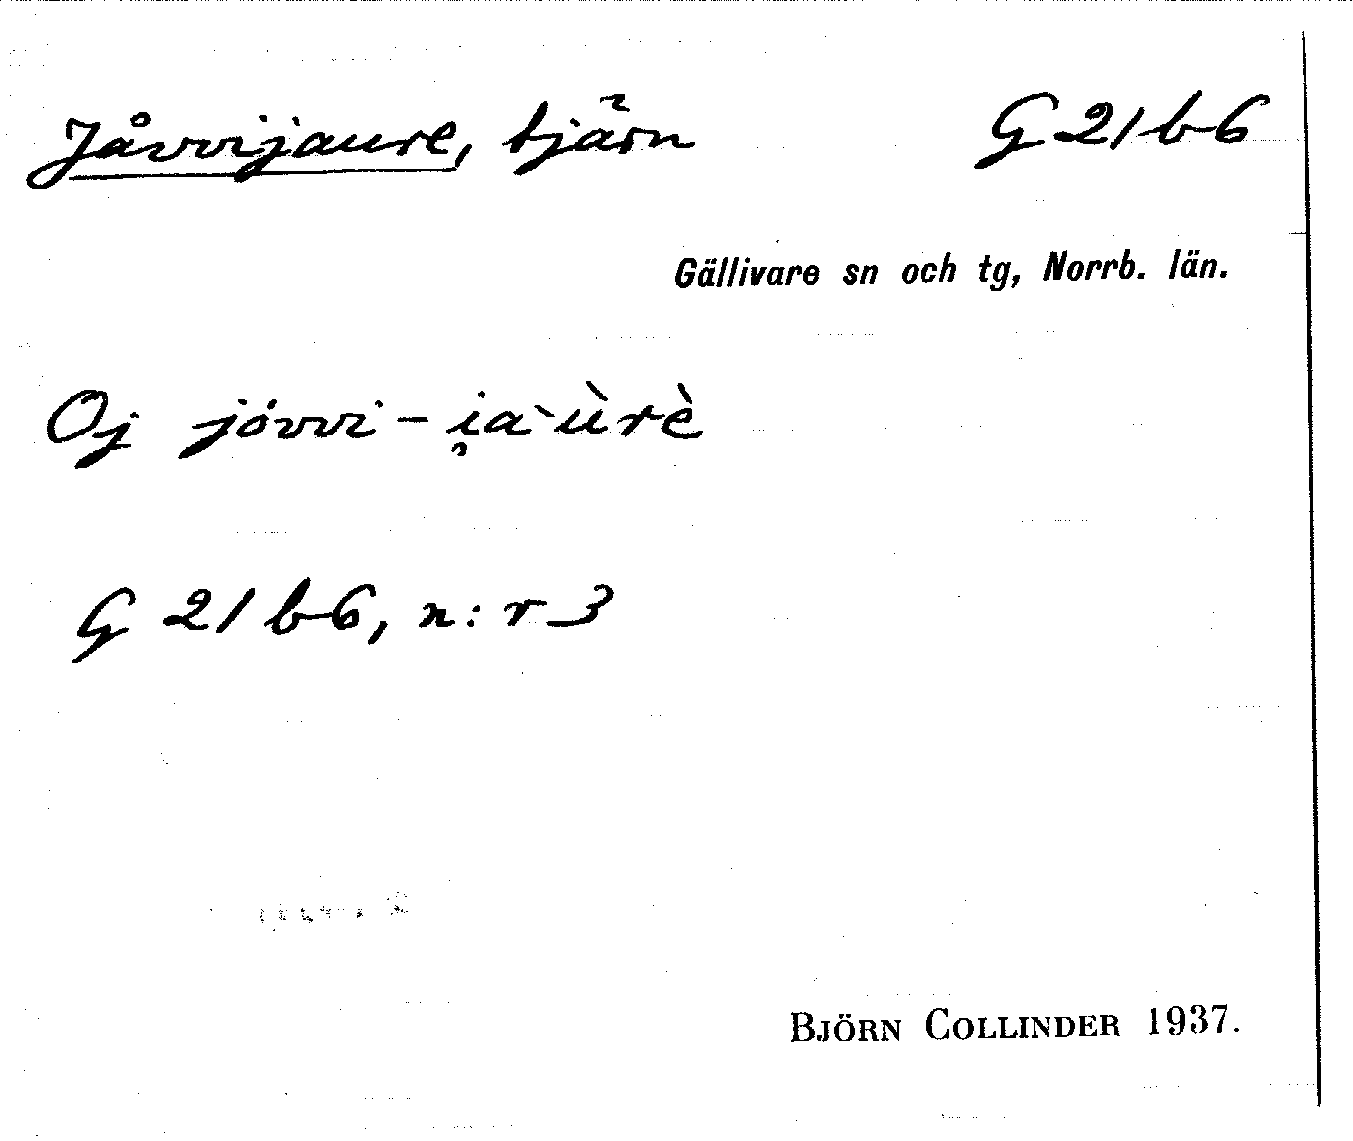 Jåvvijaure, tjärn G 21 b 6
Gällivare sn och tg, Norrb. län.
Oj jóvvi - i̯a`ùrè
G 21 b 6, n:r 3
BJÖRN COLLINDER 1937.